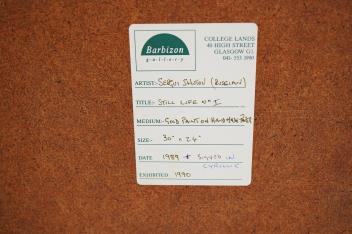 Barbizon
gallery
COLLEGE LANDS
40 HIGH STREET
GLASGOW G1
041-553 1990
ARTIST:- SERGUI (RUSSIAN)
TITLE:- STILL LIFE No I
MEDIUM:- GOLD PAINT ON HAND MADE
SIZE:- 30" x 24"
DATE 1989 + SIGNED IN
CYRILLIC
EXHIBITED 1990